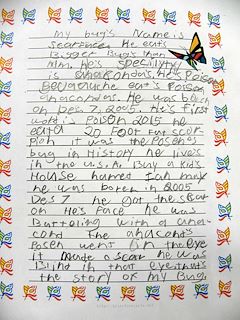 My bug's Name is
scarface He eats
Bigger Bug's than
him he's specilityty
is anakondais. He's Poison
Becauruche eat's Poison
anacondas. He was born
on Des 7 2005. He's first
word is Poison 2015 he
eat a 20 Foot Fat scor-
pian it was the Posenes
bug in History he lives
in the u.s.A. By a kid's
House named Ial max
he was boren in 2005
Des 7 he got the scar
on He's Face he was
Battaling with a anac-
cond The anacond's
Posen went in the eye
it made a scar he was
Blind in that eye that's
the story of my Bug.